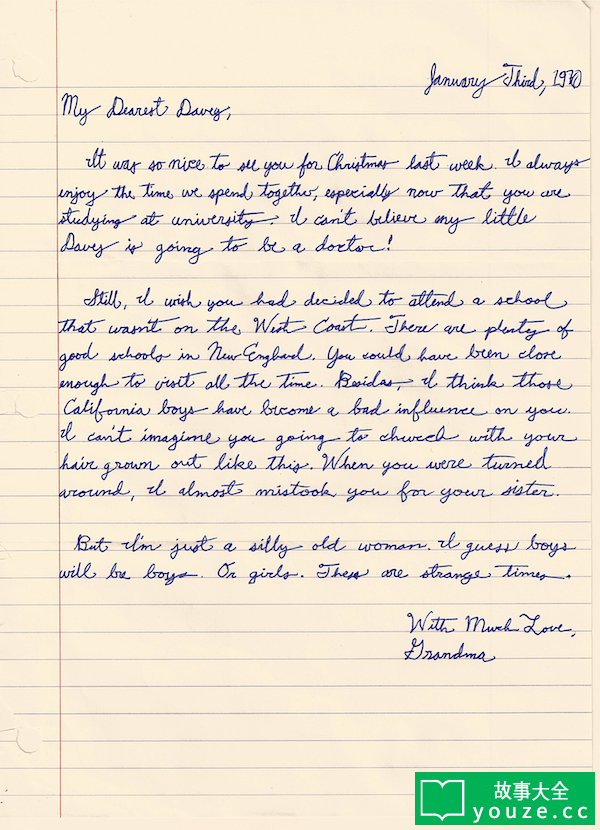 January Third, 1970
My Dearest Davey,
It was so nice to see you for Christmas last week. I always
enjoy the time we spend together, especially now that you are
studying at university. I can't believe my little
Davey is going to be a doctor!
Still, I wish you had decided to attend a school
that wasn't on the West Coast. There are plenty of
good schools in New England. You could have been close
enough to visit all the time. Besides, I think those
California boys have become a bad influence on you.
I can't imagine you going to church with your
hair grown out like this. When you were turned
around, I almost mistook you for your sister.
But I'm just a silly old woman. I guess boys
will be boys. Or girls. These are strange times.
With Much Love,
Grandma
故事大全
youze.cc